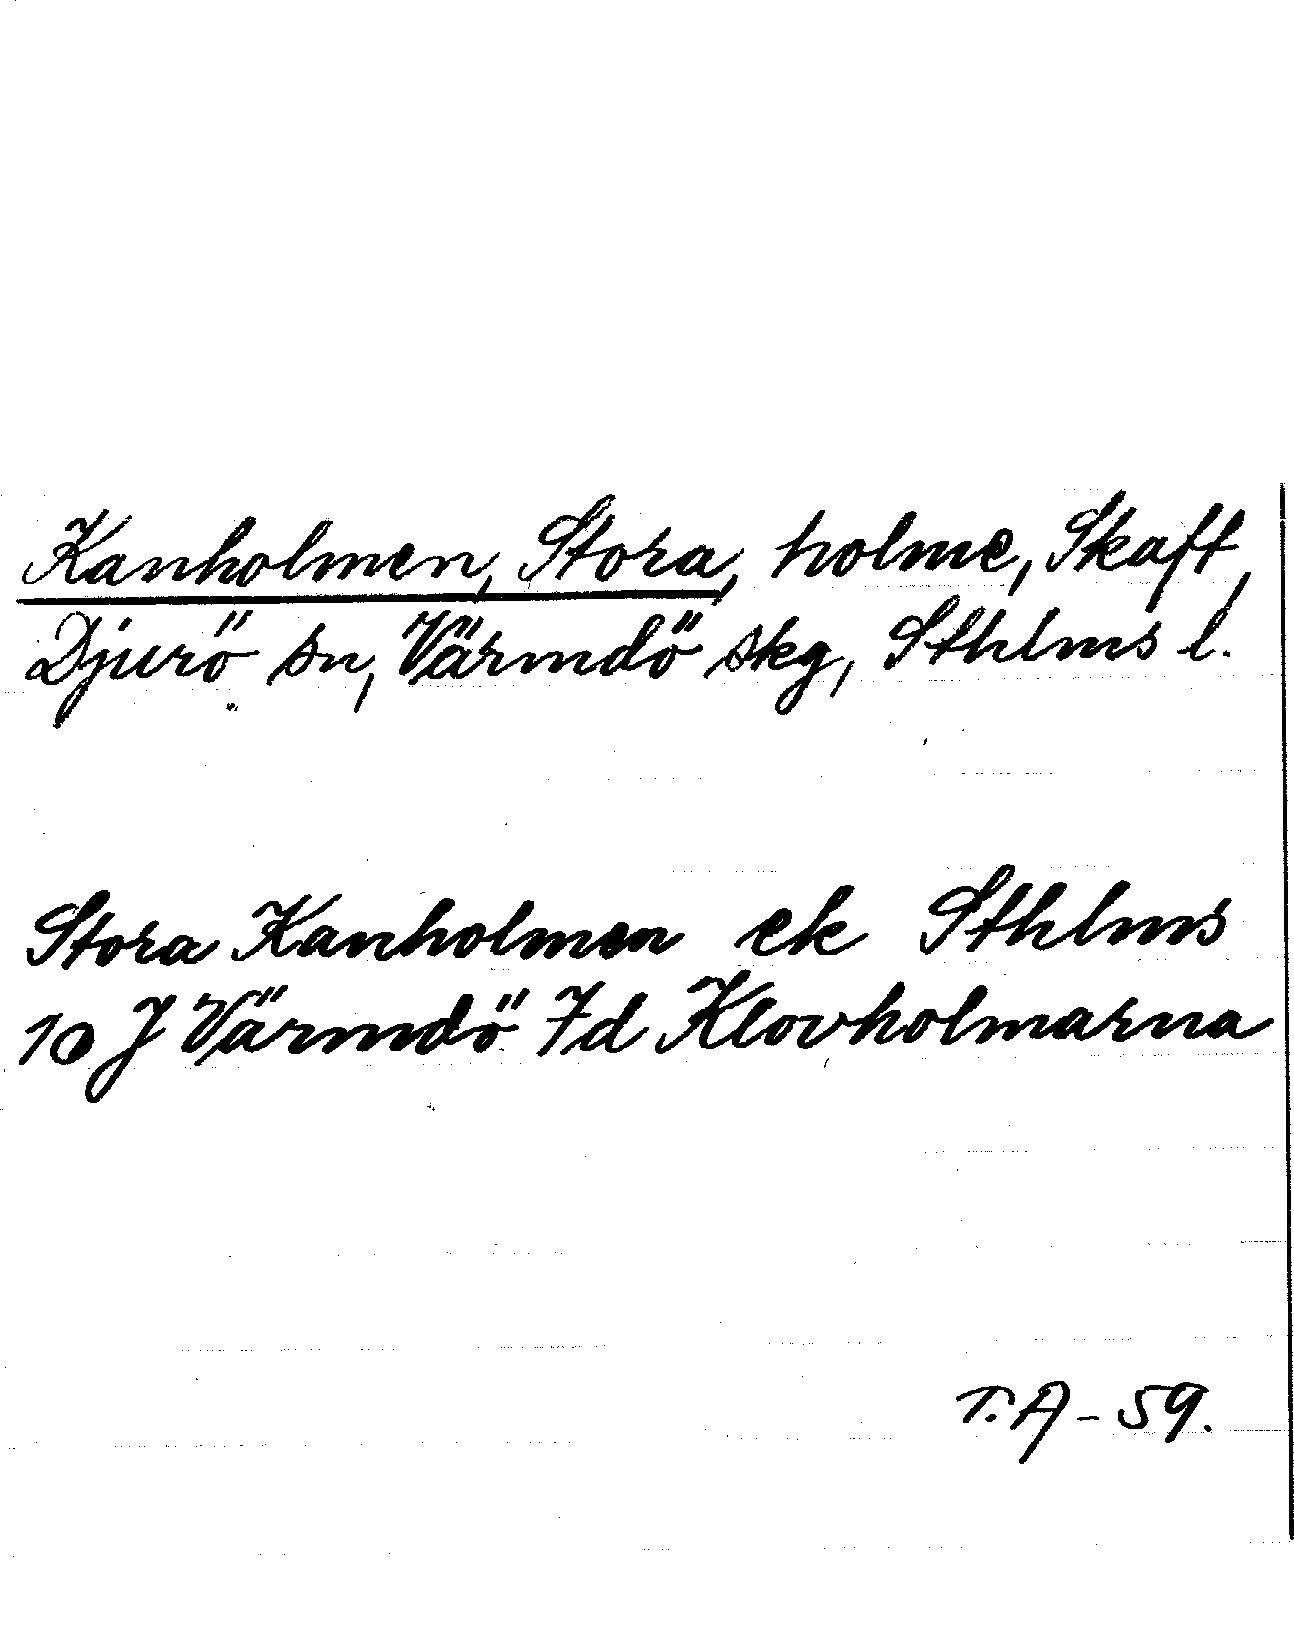 Kanholmen, Stora, holme, Skaft,
Djurö sn, Värmdö skg, Sthlms l.
Stora Kanholmen ek Sthlms
10 J Värmdö 7d Klovholmarna
T.A - 59.